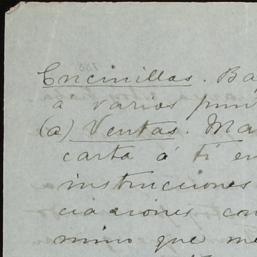 Encinillas. Ba
a varios pun
(a) Ventas. Ma
carta á ti en
instrucciones
ciaciones con
mino que me